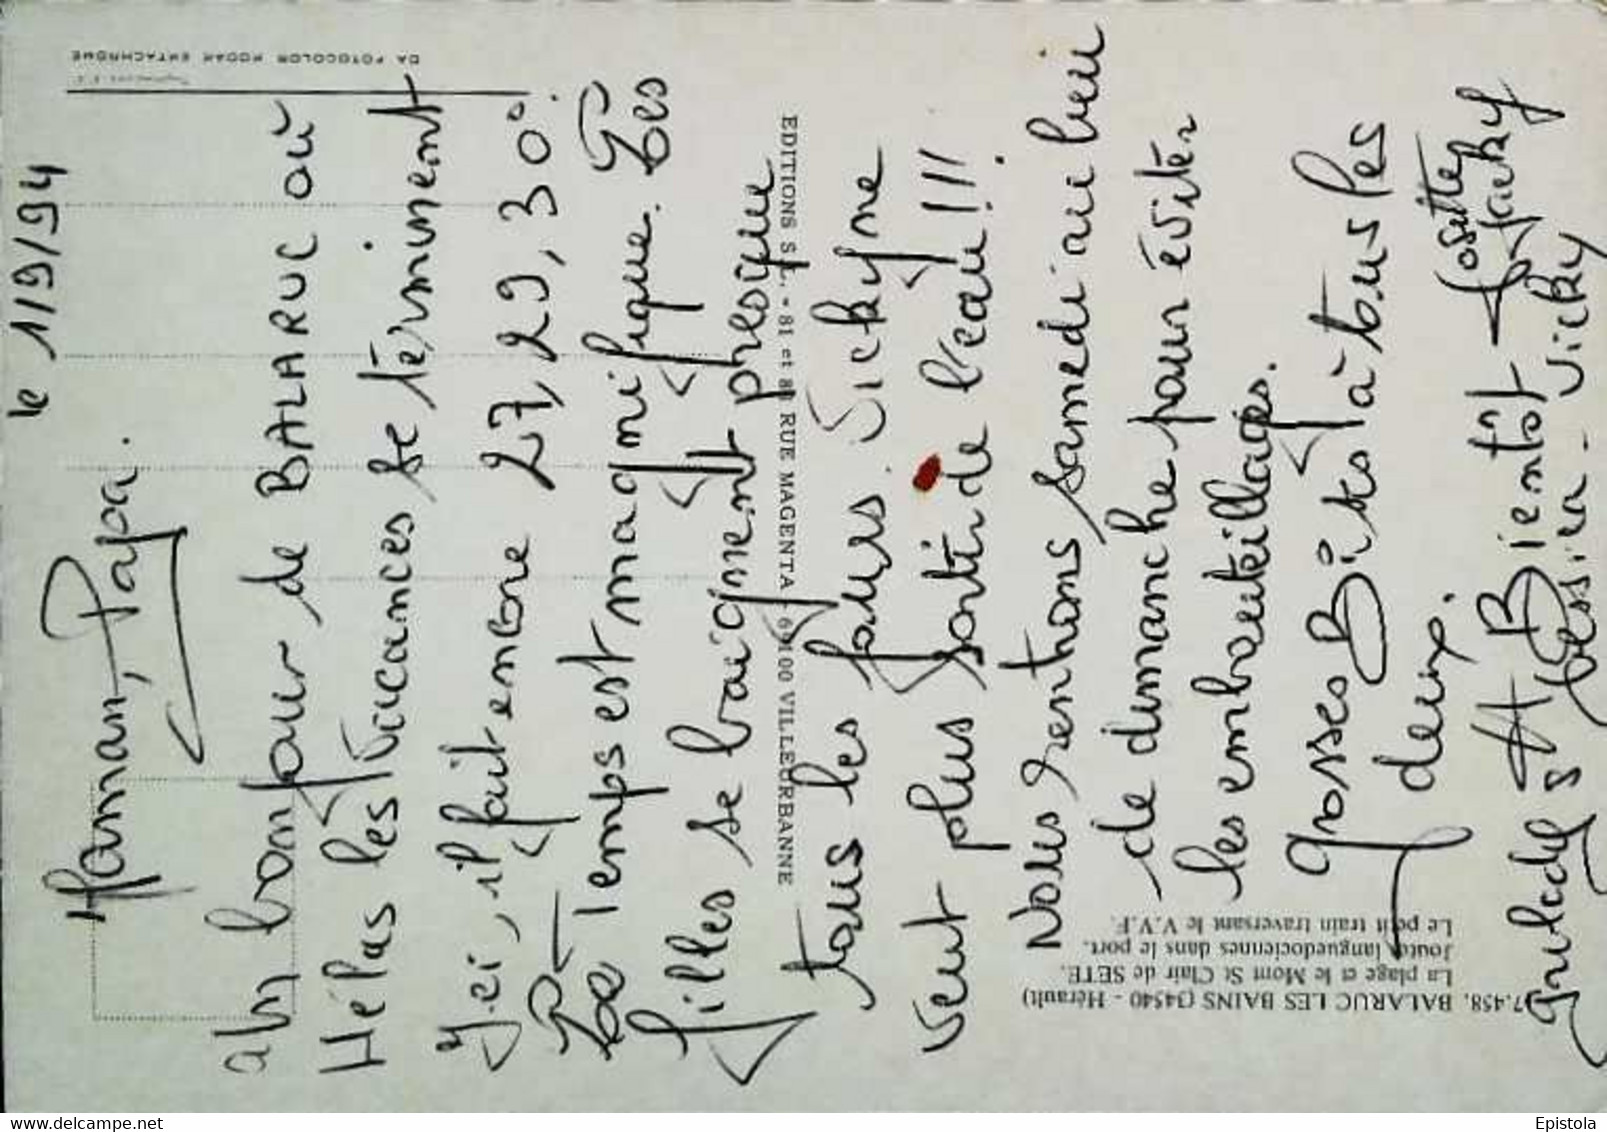 le 1/9/94
Maman, Papa.
un bonjour de BALARUC où
Hélas les Vacances se terminent
Ici, il fait encore 27, 29, 30°.
Le Temps est magnifique. Les
filles se baignent presque
tous les jours. Vicky ne
veut plus sortir de l'eau!!!
Nous rentrons samedi au lieu
de dimanche pour éviter
les embouteillages.
Grosses Bises à tous les
deux.
A Bientôt
Jessica - Vicky
DA FOTOCOLOR KODAK EKTACHROME
EDITIONS S.L. - 81 et 83 RUE MAGENTA 69100 VILLEURBANNE
7.458. BALARUC LES BAINS (34540 - Hérault)
La plage et le Mont St Clair de SETE.
Joutes languedociennes dans le port.
Le petit train traversant le V.V.F.
delcampe.net
Epistola